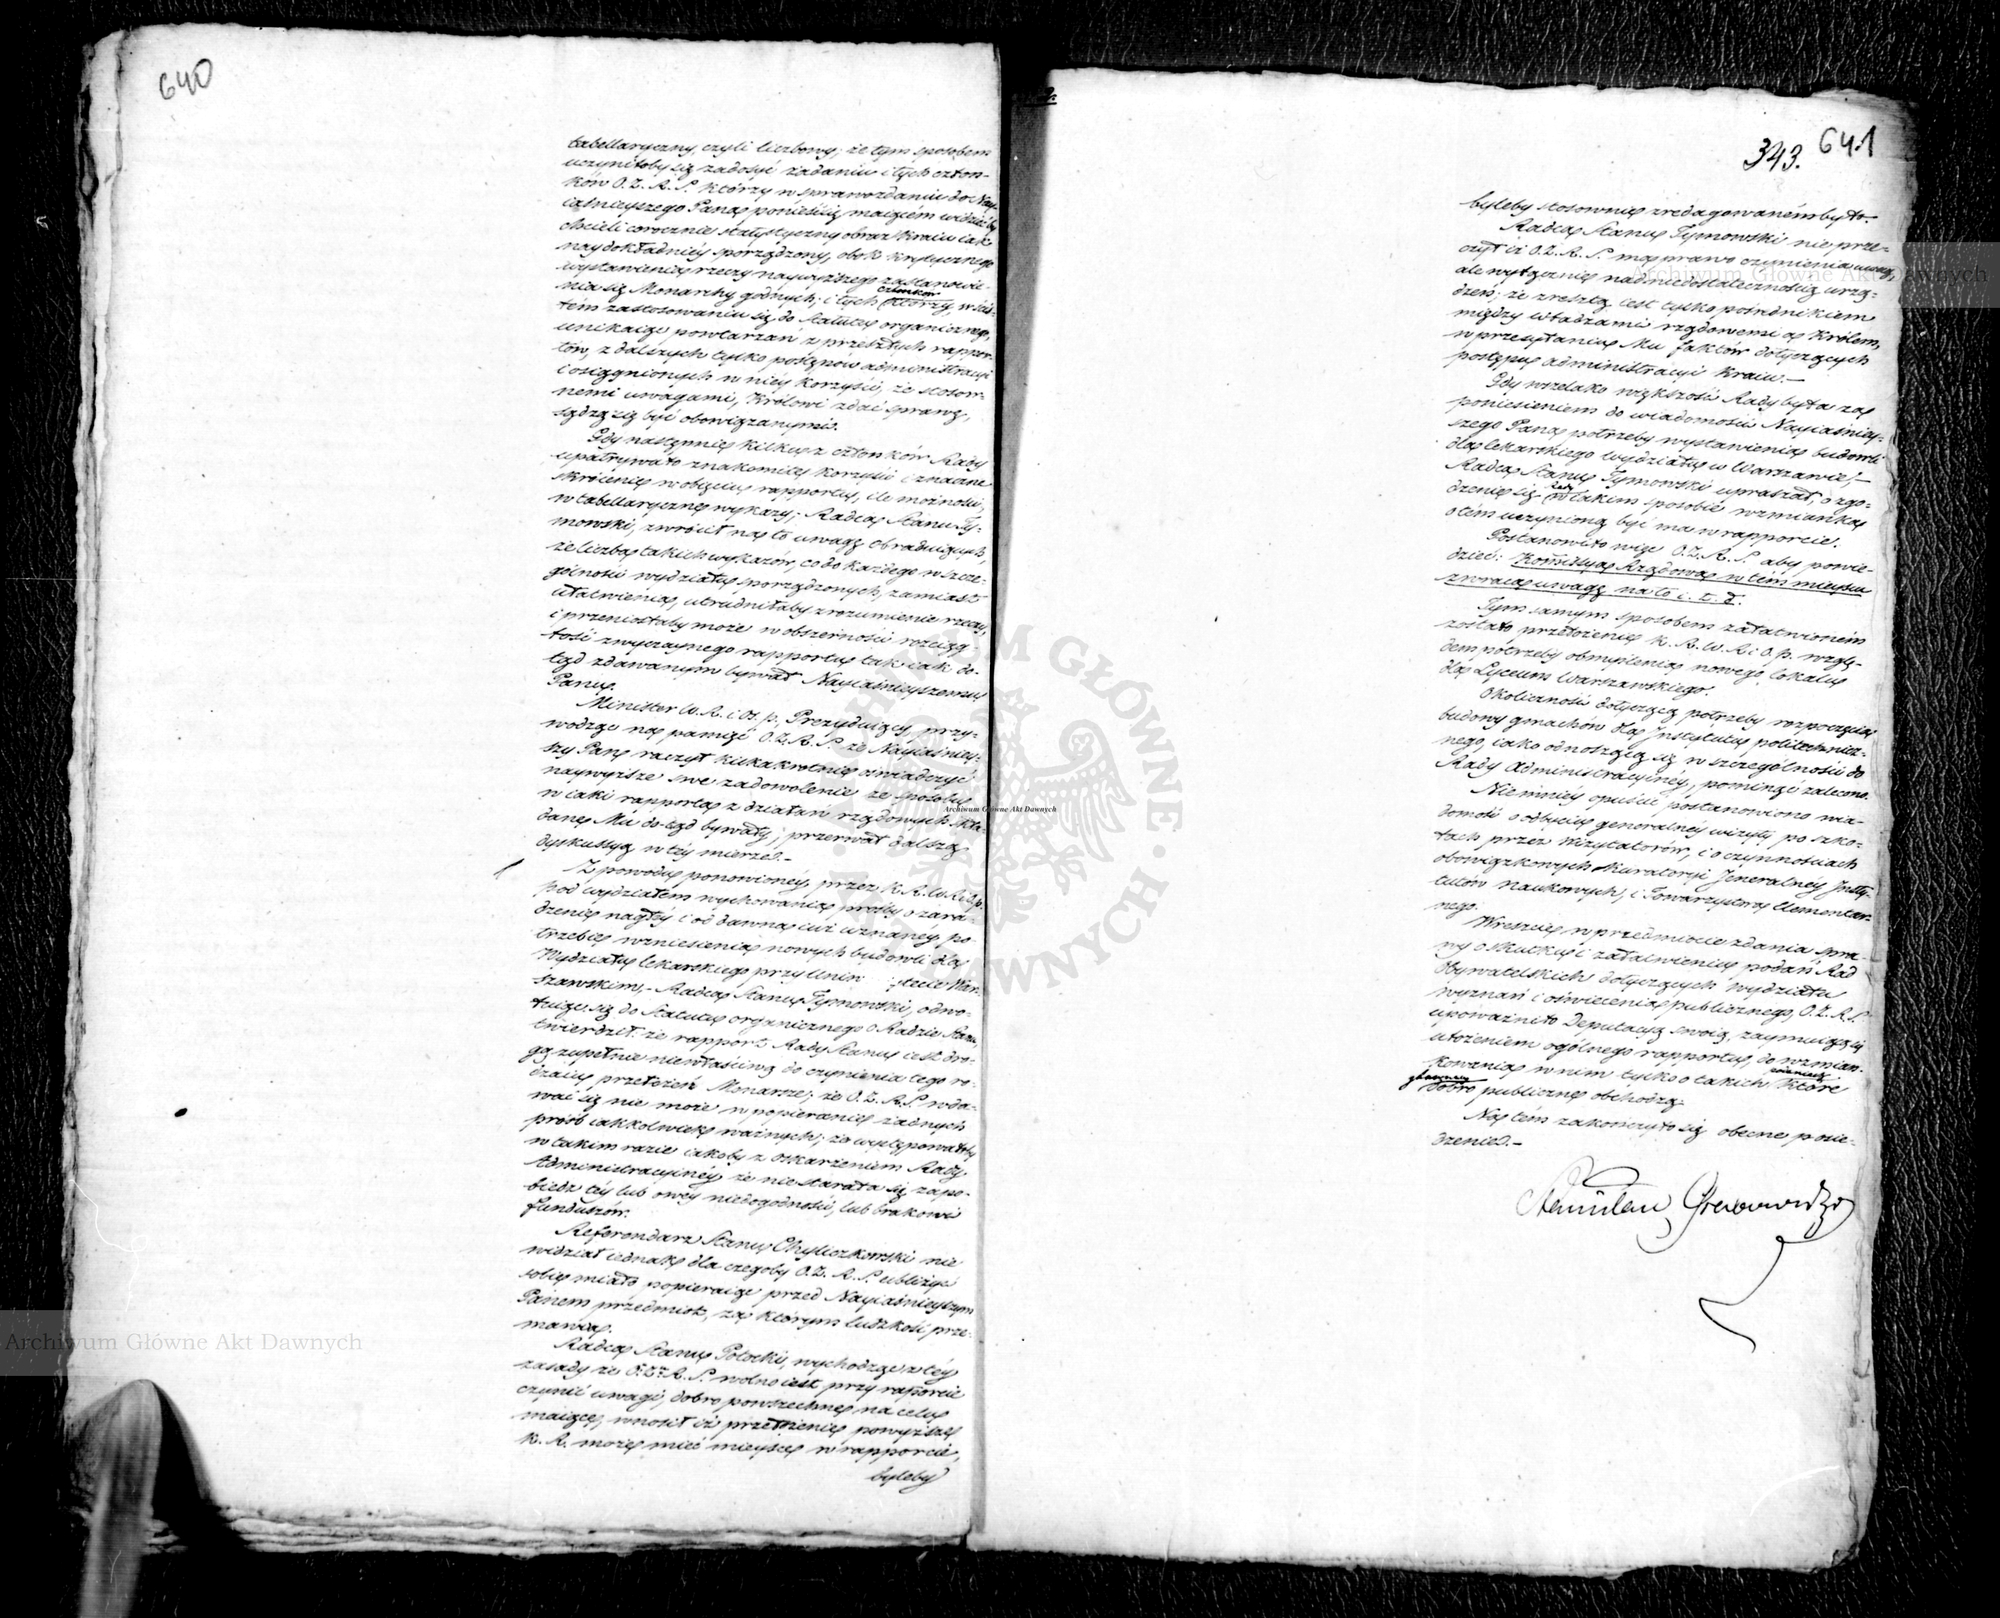 640
tabellaryczny, czyli liczbowy; że tym sposobem
uczyniłoby się zadosyć żądaniu i tych człon-
ków O.Z.R.S. którzy w sprawozdaniu do Nay-
iaśnieyszego Pana ponieść się maiącém widzieć by
chcieli corocznie statystyczny obraz kraiu iak
naydokładniéy sporządzony, obok krytycznego
wystawienia rzeczy naywyższego zastanowie-
nia się Monarchy godnych; i tych członków którzy, w ści-
słém zastosowaniu się do Statutu organicznego,
unikaiąc powtarzań z przeszłych rappor-
tów, z dalszych tylko postępów administracyi
i osiągnionych w niéy korzyści, ze stosow-
nemi uwagami, Królowi zdać sprawę,
sądzą się być obowiązanymi.
Gdy następnie kilku z członków Rady
upatrywało znakomite korzyści i znaczne
skrócenie w obięciu rapportu, ile możności,
w tabellaryczne wykazy; Radca Stanu Ty-
mowski, zwrócił na to uwagę Obraduiących,
że liczba takich wykazów, co do każdego w szcze-
gólności wydziału sporządzonych, zamiast
ułatwienia, utrudniłaby zrozumienie rzeczy,
i przeniosłaby może w obszerności rozcią-
łość zwyczaynego rapportu tak iak do-
tąd zdawanym bywał Nayiaśnieyszemu
Panu.
Minister W.R. i Oś. p. Prezyduiący, przy-
wodząc na pamięć O.Z.R.S. że Nayiaśniey-
szy Pan raczył kilkakrotnie oświadczyć
naywyższe swe zadowolenie ze sposobu
w iaki rapporta z działań rządowych skła-
dane Mu do-tąd bywały; przerwał dalszą
dyskussyą w téy mierze.-
Z powodu ponowionéy przez K.R.W.R. i O.p.
pod wydziałem wychowania prośby o zara-
dzenie nagłéy i od dawna iuż uznanéy po-
trzebie wzniesienia nowych budowli dla
Wydziału lekarskiego przy Uniw tecie War-
szawskim,- Radca Stanu Tymowski, odwo-
łuiąc się do Statutu organicznego o Radzie Stanu,
twierdził: że rapport Rady Stanu iest dro-
gą zupełnie niewłaściwą do czynienia tego ro-
dzaiu przełożeń Monarsze; że O.Z.R.S. wda-
wać się nie może w popieranie żadnych
próśb iakkolwiek ważnych; że występowałby
w takim razie iakoby z oskarżeniem Rady
Administracyinéy, że nie starała się zapo-
biedz téy lub owéy niedogodności, lub brakowi
funduszów.
Referendarz Stanu Chyliczkowski nie
widział iednak dla czegoby O.Z.R.S. ubliżyć
sobie miało popieraiąc przed Nayiaśnieyszym
Panem przedmiot, za którym ludzkość prze-
mawia.
Radca Stanu Potocki, wychodząc z téy
zasady że O.Z. R.S. wolno iest przy raporcie
czynić uwagi, dobro powszechne na celu
maiące, wnosił iż przełożenie powyższe
K.R. może mieć mieysce w rapporcie,
byleby
343. 641
byleby stosownie zredagowaném było.
Radca Stanu Tymowski nie prze-
czył iż O.Z.R.S. ma prawo czynienia uwag,
ale wyłącznie nad niedostatecznością urzą-
dzeń; że zresztą iest tylko pośrednikiem
między władzami rządowemi a Królem,
w przesyłaniu Mu faktów dotyczących
postępu administracyi kraiu.-
Gdy wszelako większość Rady była za
poniesieniem do wiadomości Nayiaśniey-
szego Pana potrzeby wystawienia budowli
dla lekarskiego wydziału w Warszawie;-
Radca Stanu Tymowski upraszał, o zgo-
dzenie się Rady w iakim sposobie wzmianka
o tém uczynioną być ma w rapporcie.
Postanowiło więc O.Z.R.S. aby powie-
dzieć: Kommissya Rządowa w tém mieyscu
zwraca uwagę na to i. t. d.
Tym samym sposobem załatwioném
zostało przełożenie K.R.W.R. i O.p. wzglę-
dem potrzeby obmyślenia nowego lokalu
dla Lyceum Warszawskiego.
Okoliczność dotyczącą potrzeby rozpoczęcia
budowy gmachów dla Instytutu politechnicz-
nego, iako odnoszącą się w szczególności do
Rady Administracyinéy, pominąć zalecono.
Niemniéy opuścić postanowiono wia-
domość o odbyciu generalnéy wizyty po szko-
łach przez Wizytatorów, i o czynnościach
obowiązkowych Kuratoryi Jeneralnéy Insty-
tutów naukowych, i Towarzystwa Elementar-
nego.
Wreszcie w przedmiocie zdania spra-
wy o skutku i załatwieniu podań Rad
Obywatelskich dotyczących wydziału
wyznań i oświecenia publicznego, O.Z.R.S.
upoważniło Deputacyą swoią, zaymuiącą się
ułożeniem ogólnego rapportu, do wzmian-
kowania w nim tylko o takich które
dobro publiczne obchodzą.
Na tém zakończyło się obecne posie-
dzenie.-
Stanisław Grabowski